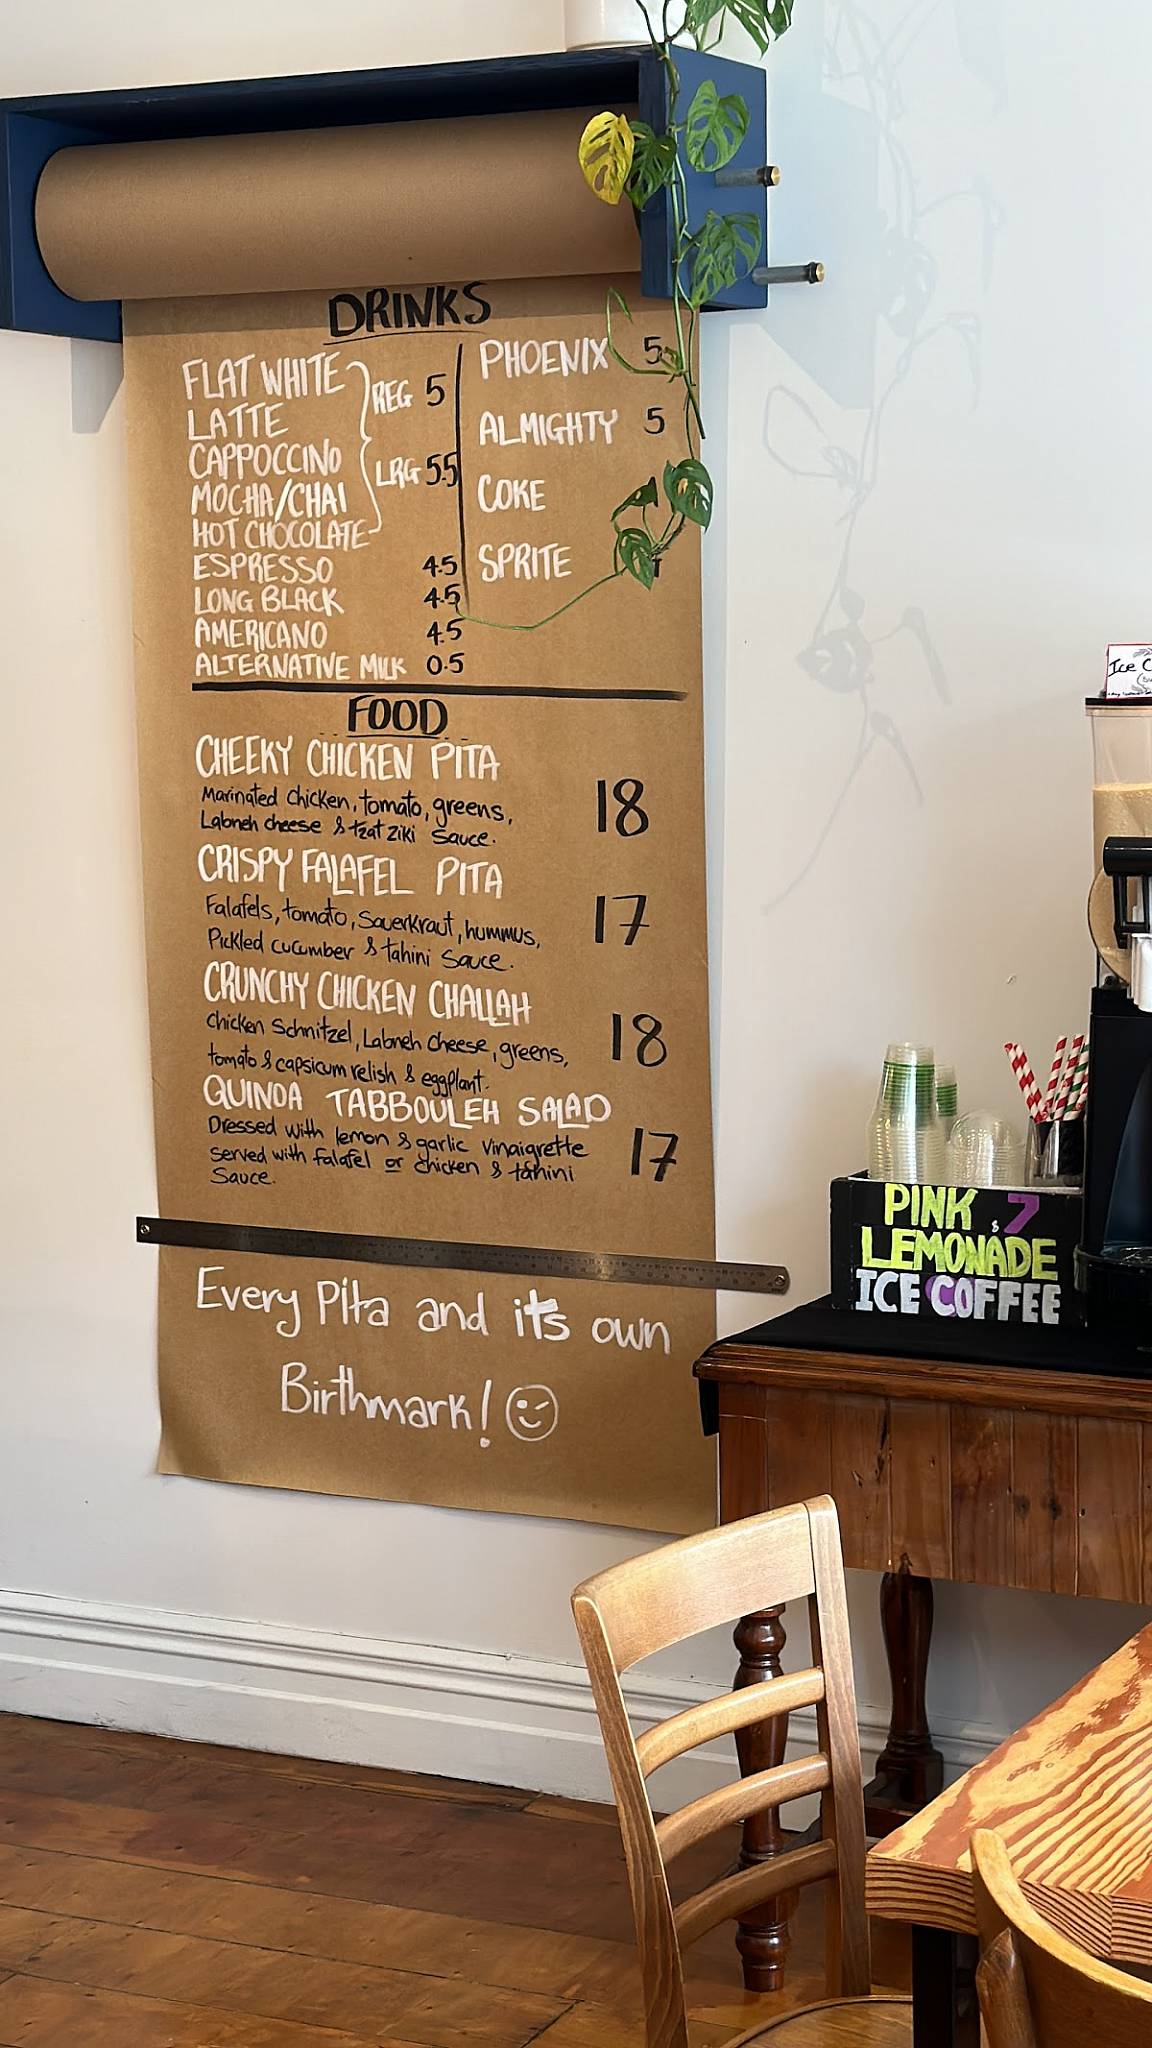 DRINKS
FLAT WHITE
LATTE
CAPPOCCINO
MOCHA/CHAI
HOT CHOCOLATE
REG 5
LRG 5.5
ESPRESSO 4.5
LONG BLACK 4.5
AMERICANO 4.5
ALTERNATIVE MILK 0.5
PHOENIX 5
ALMIGHTY 5
COKE
SPRITE
FOOD
CHEEKY CHICKEN PITA
Marinated Chicken, tomato, greens,
Labneh cheese & tzatziki Sauce.
18
CRISPY FALAFEL PITA
Falafels, tomato, Sauerkraut, hummus,
Pickled cucumber & tahini Sauce.
17
CRUNCHY CHICKEN CHALLAH
Chicken Schnitzel, Labneh Cheese, greens,
tomato & capsicum relish & eggplant.
18
QUINOA TABBOULEH SALAD
Dressed with lemon & garlic vinaigrette
served with falafel or chicken & tahini
Sauce.
17
Every Pita and its own
Birthmark!
Ice C
PINK $7
LEMONADE
ICE COFFEE